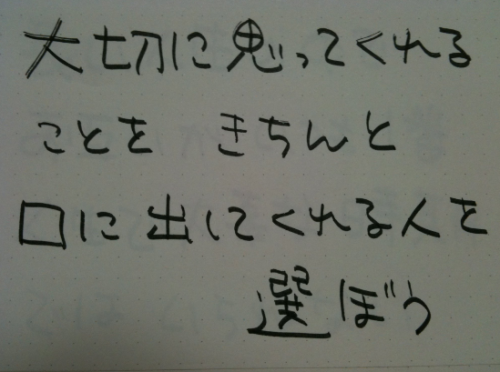 大切に思ってくれる
ことを きちんと
口に出してくれる人を
選ぼう